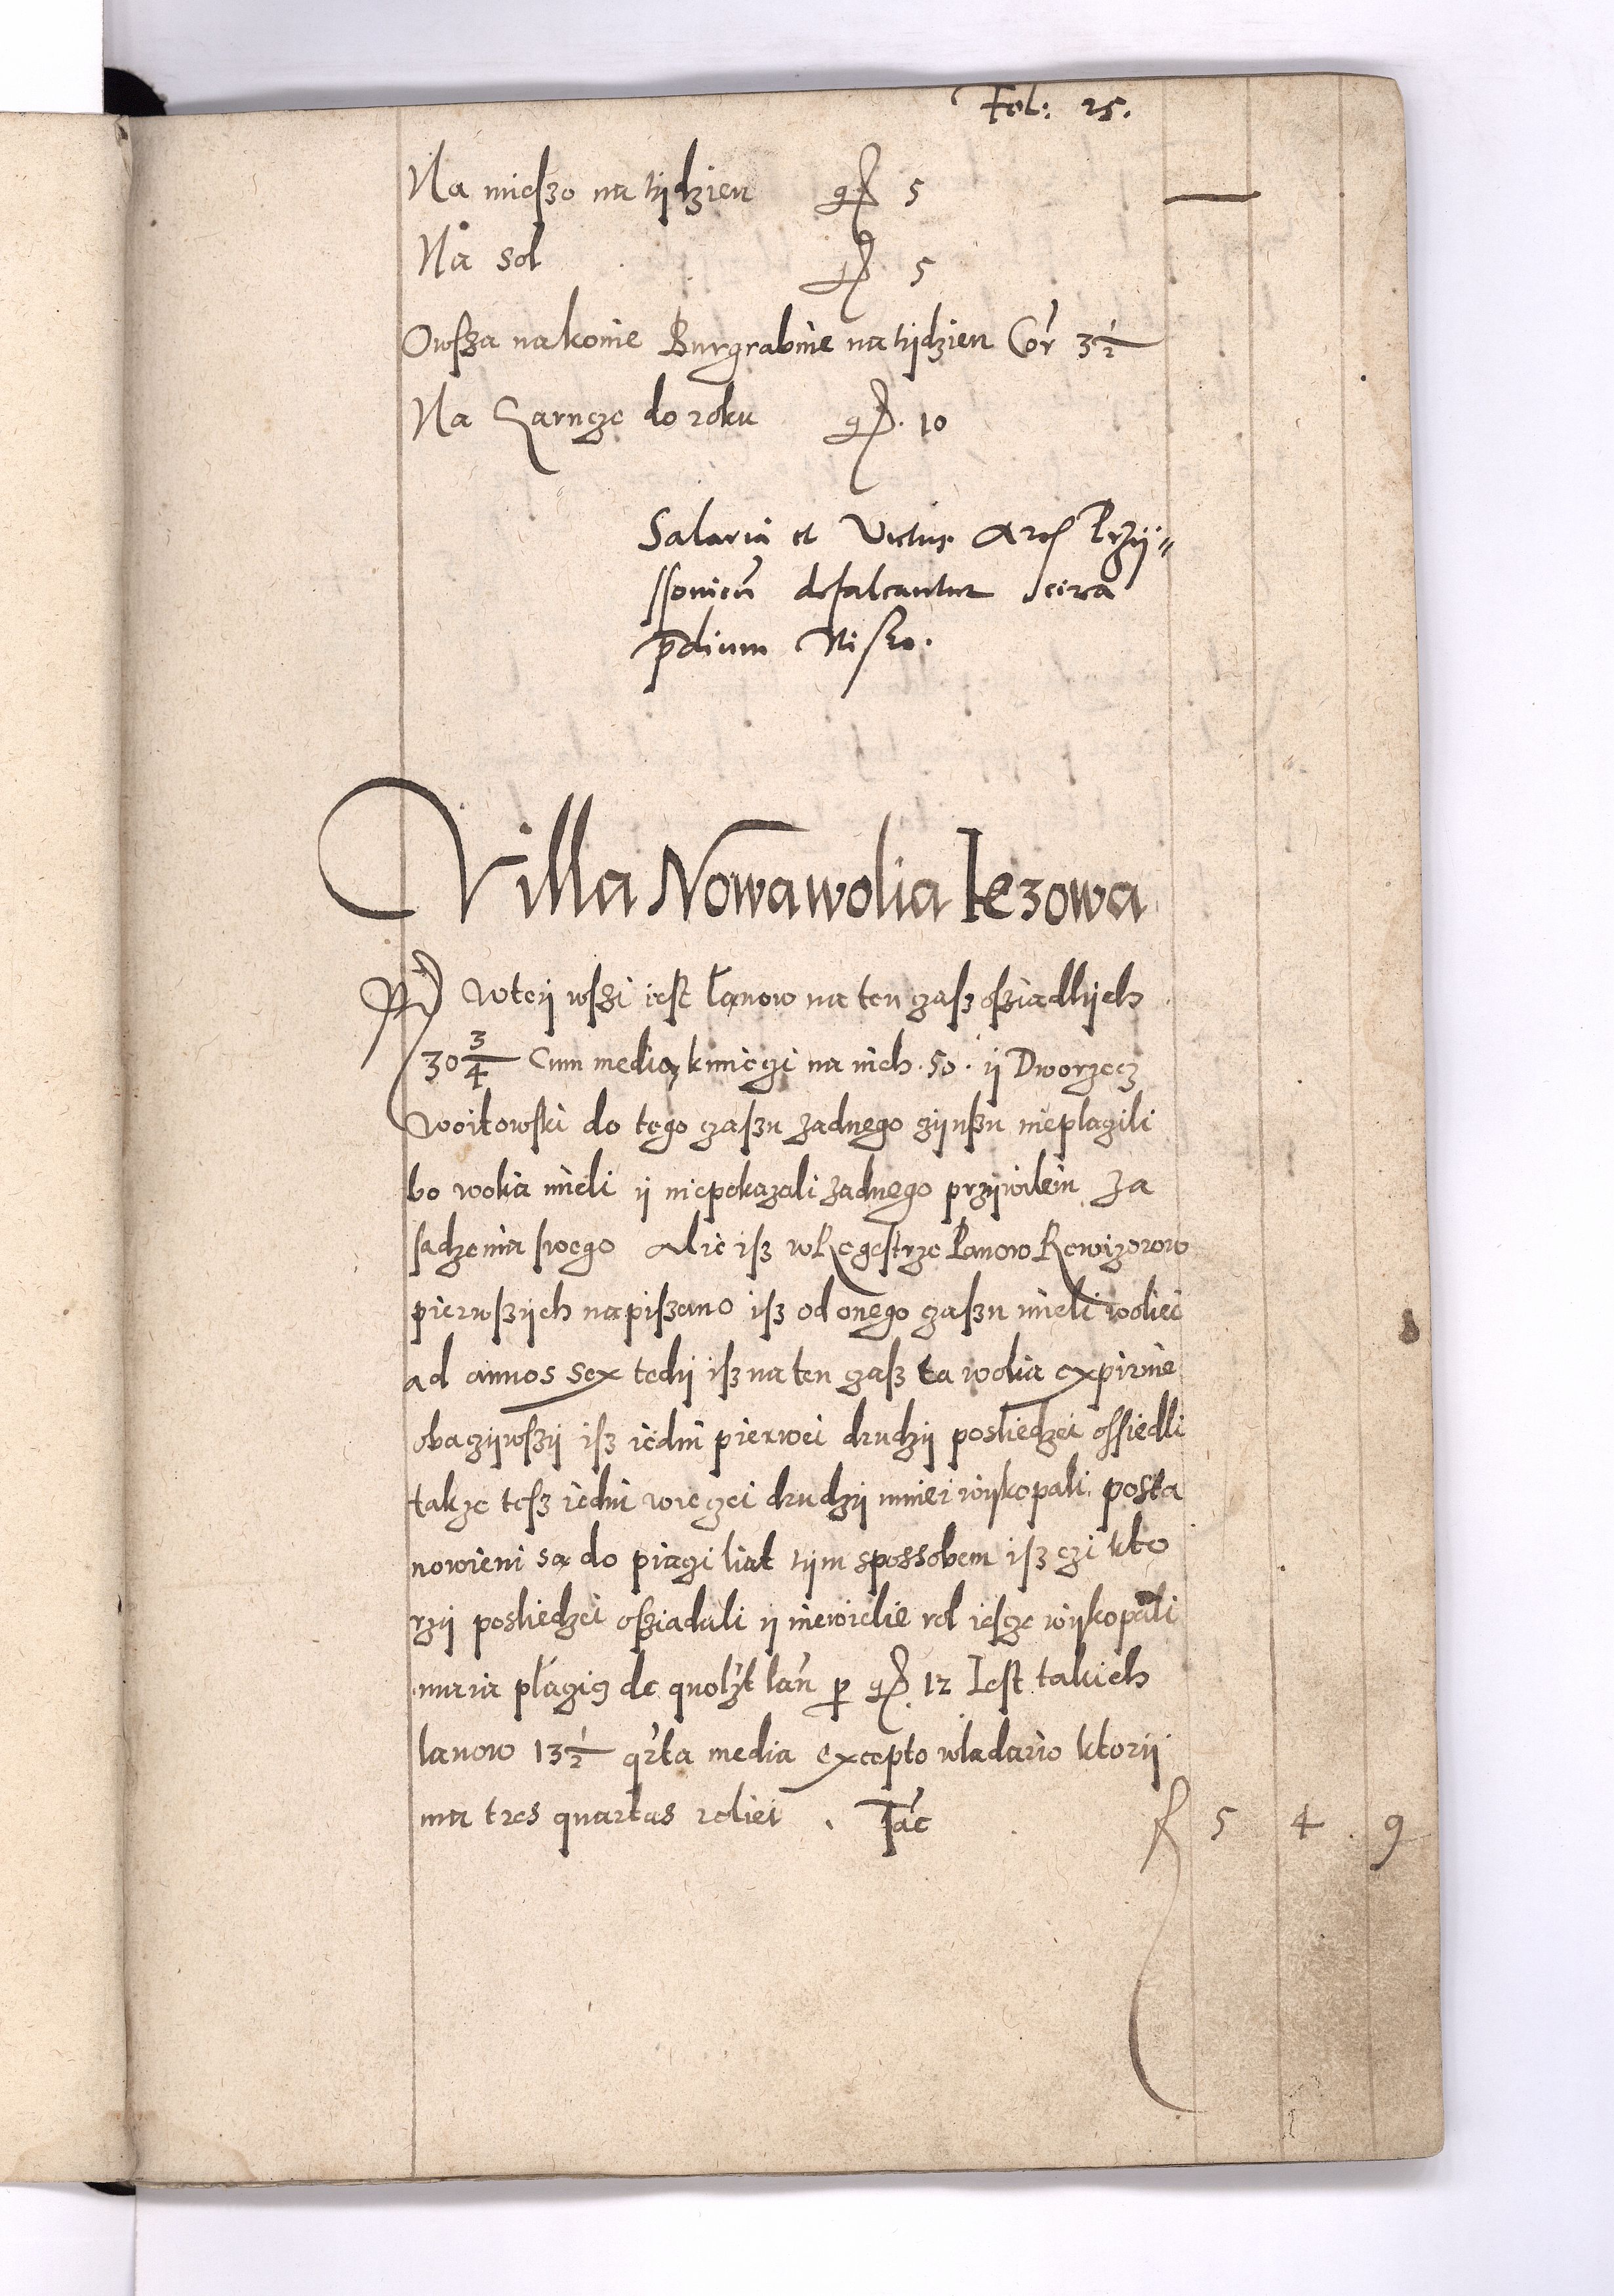 Fol: 25.
Na mięszo na tijdzien g 5
Na sol g 5
Owsza na konie Burgrabine na tijdzien Cor 3 1/2
Na Garncze do roku g. 10
Salaria et Victus Arcs Przij-
ssonicu defalcantur circa
pdium Nisko.
Villa Nowawolia Iezowa
W teij wszi iest łanow na ten czasz osziadlijch
30 3/4 Cum media, kmieczi na nich .50. ij Dworzecz
Woitowski do tego czaszu zadnego czijnszu nieplaczili
bo wolia mieli ij niepokazali zadnego przijwileiu za
sadzenia swego Alie isz w Regestrze Panow Rewizorow
pierwszijch napiszano isz od onego czaszu mieli woliei
ad annos sex tedij isz na ten czasz ta wolia expirnie
obaczijwszij isz iedni pierwei drudzij posliedzei ossiedli
takze tesz iedni wieczei drudzij mniei wijkopali posta
nowieni są do piączi liat tijm spossobem isz czi kto
rzij posliedzei osziadali ij niewielie rol iescze wijkopali
maia płaczicz de quolzt lan p g. 12 Iest takich
lanow 13 1/2 qrta media excepto wladario ktorij
ma tres quartas roliei . Fac f 5 4 9